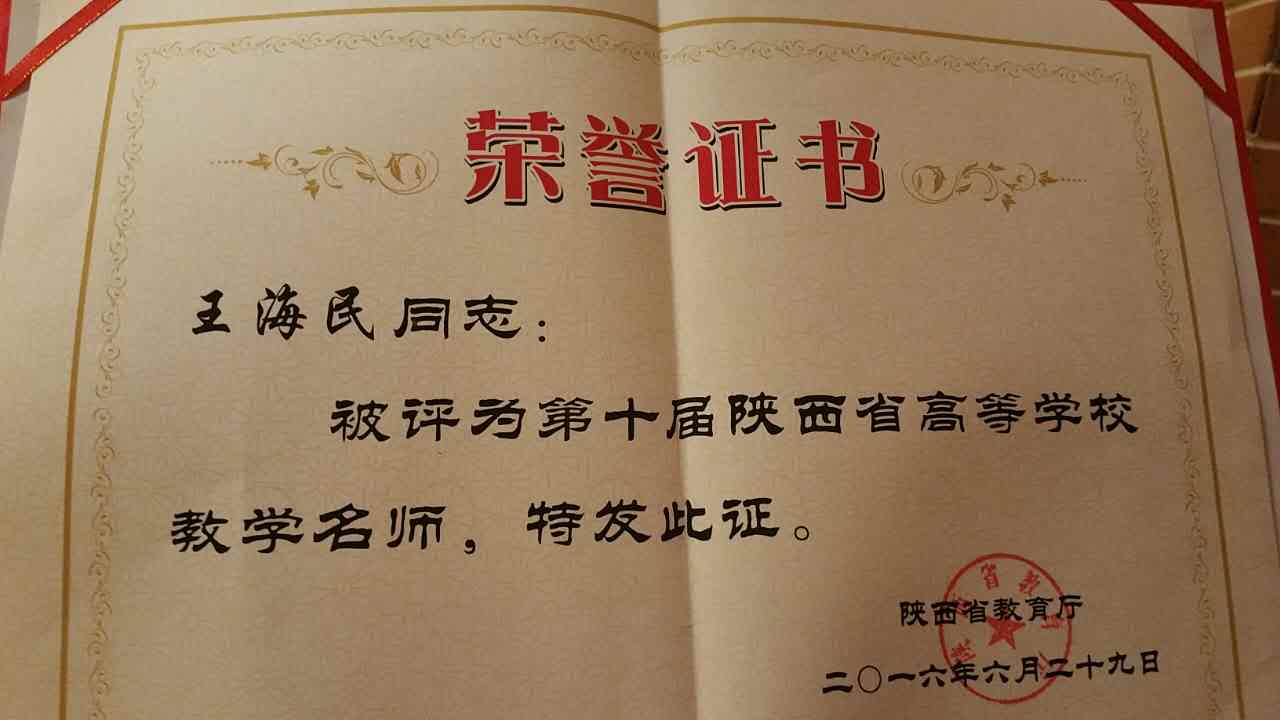 荣誉证书
王海民同志：
被评为第十届陕西省高等学校
教学名师，特发此证。
陕西省教育厅
二〇一六年六月二十九日